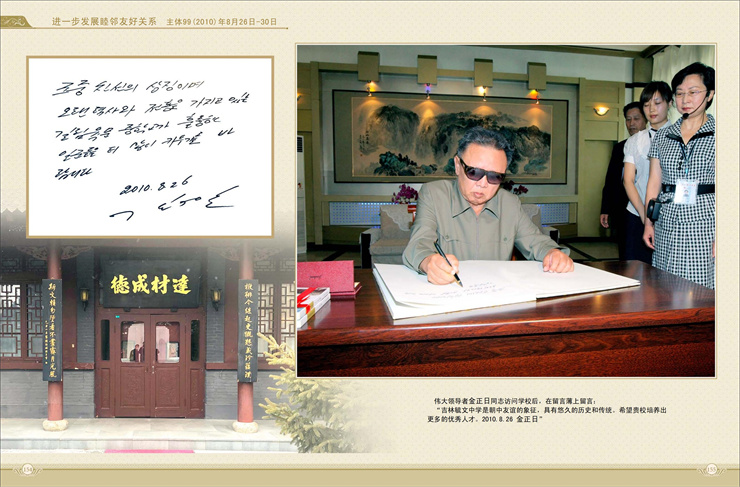 进一步发展睦邻友好关系 主体99(2010)年8月26日-30日
조중 친선의 상징이며
오랜 력사와 전통을 가지고 있는
길림육문 중학교가 훌륭한
더 많이 키우기를 바
랍니다
2010.8.26
김정일
達材成德
伟大领导者金正日同志访问学校后，在留言薄上留言：
“吉林毓文中学是朝中友谊的象征，具有悠久的历史和传统，希望贵校培养出
更多的优秀人才。2010.8.26 金正日”